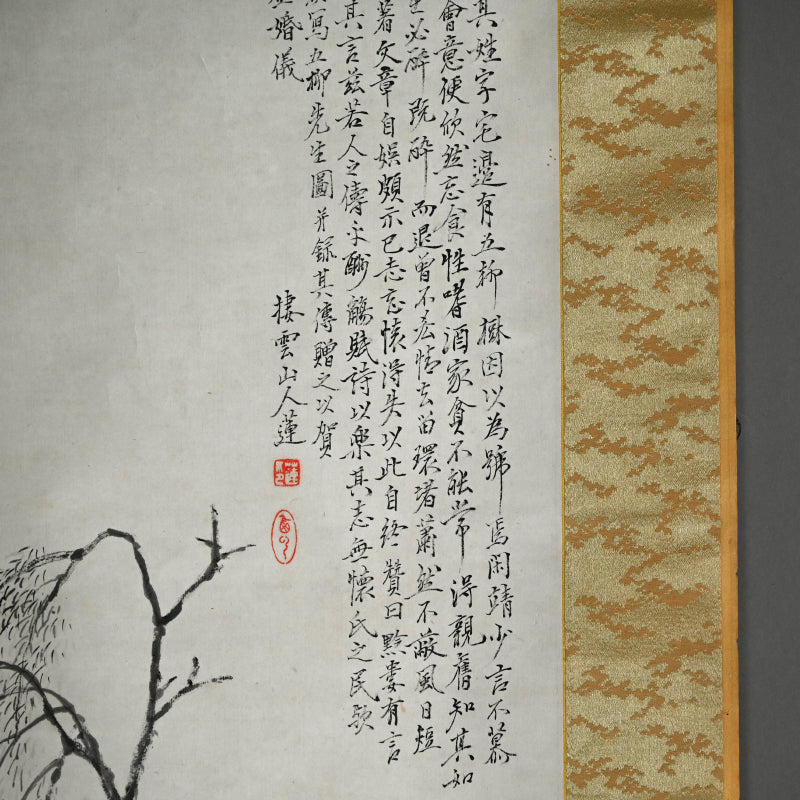 其姓字宅邊有五柳樹因以為號焉閑靖少言不慕
會意便欣然忘食性嗜酒家貧不能常得親舊知其如
必醉既醉而退曾不吝情去留環堵蕭然不蔽風日短
著文章自娛頗示己志忘懷得失以此自終贊曰黔婁有言
其言茲若人之儔乎酬觴賦詩以樂其志無懷氏之民歟
寫五柳先生圖并錄其傳贈之以賀
婚儀
棲雲山人蓮